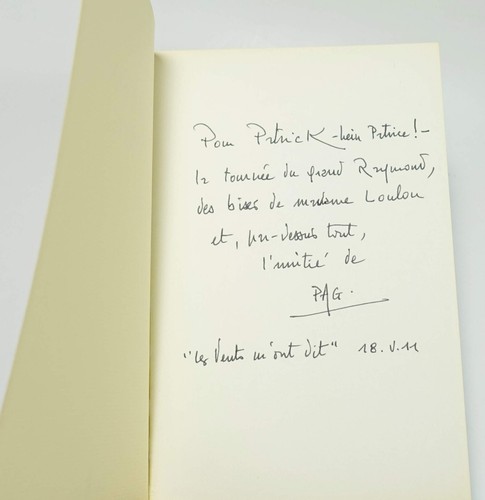 Pour Patrick - hein Patrice ! -
la tournée du grand Raymond,
des bises de madame Loulou
et, par-dessus tout,
l'amitié de
PAG.
"les Vents m'ont dit" 18.V.11